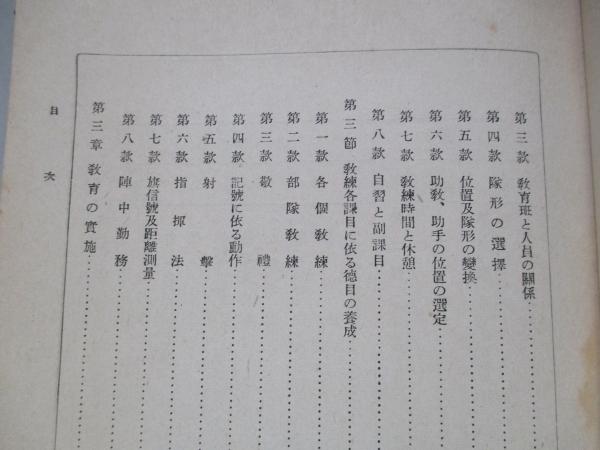 第三款 教育班と人員の關係
第四款 隊形の選擇
第五款 位置及隊形の變換
第六款 助教、助手の位置の選定
第七款 教練時間と休憩
第八款 自習と副課目
第三節 教練各課目に依る德目の養成
第一款 各個教練
第二款 部隊教練
第三款 敬禮
第四款 記號に依る動作
第五款 射擊
第六款 指揮法
第七款 旗信號及距離測量
第八款 陣中勤務
第三章 教育の實施
目次